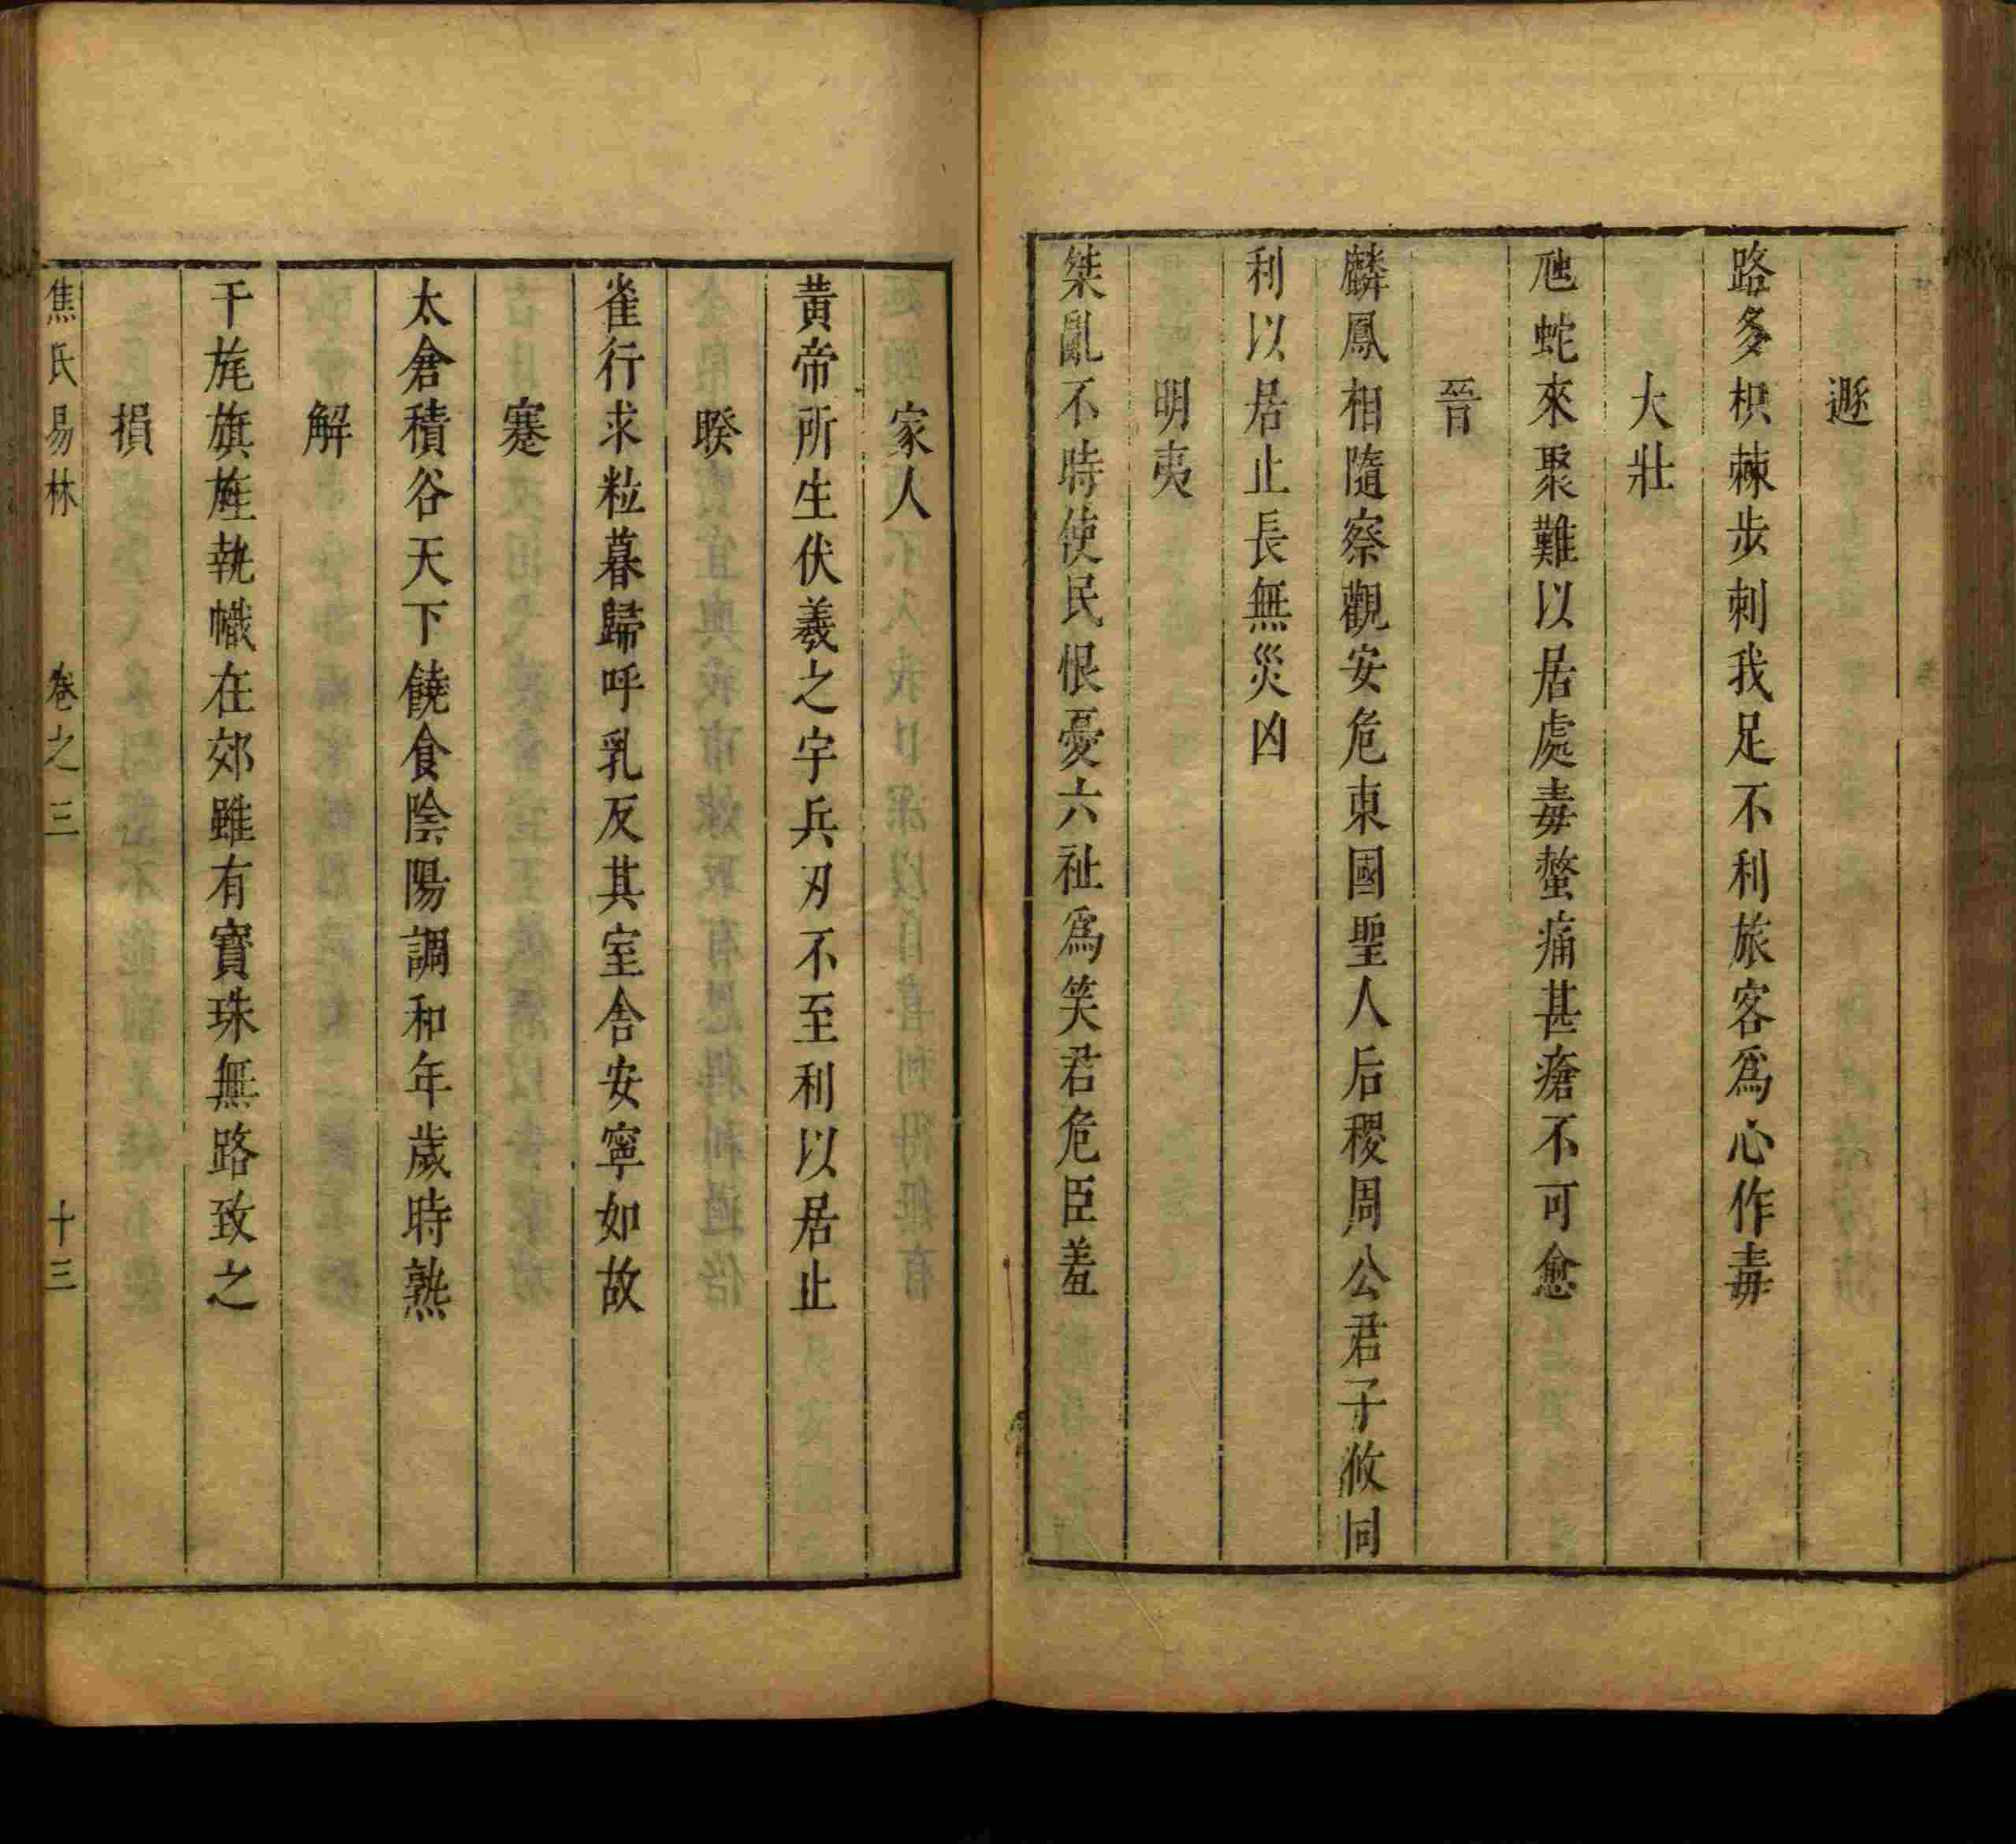 遯
路多枳棘步刺我足不利旅客爲心作毒
大壯
虺蛇來聚難以居處毒螫痛甚瘡不可愈
晉
麟鳳相隨察觀安危東國聖人后稷周公君子攸同
利以居止長無災凶
明夷
桀亂不時使民恨憂六祉爲笑君危臣羞
家人
黃帝所生伏羲之宇兵刃不至利以居止
睽
雀行求粒暮歸呼乳反其室舍安寧如故
蹇
太倉積谷天下饒食陰陽調和年歲時熟
解
干旄旗旌執幟在郊雖有寶珠無路致之
損
焦氏易林 卷之三 十三